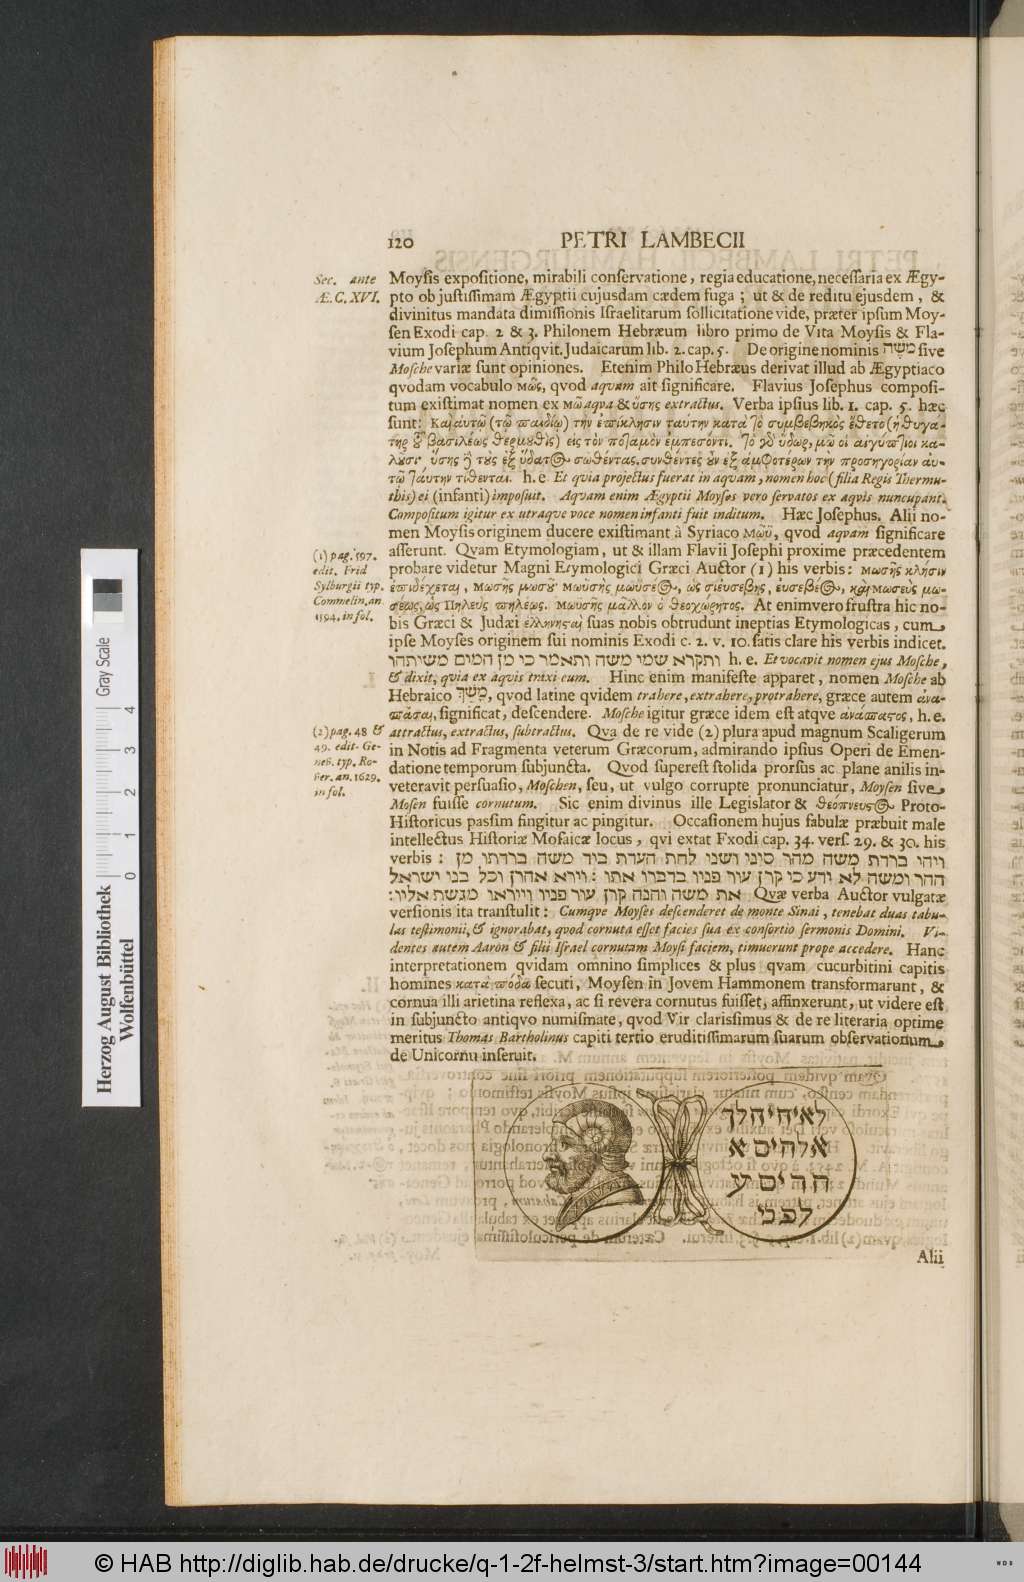 120 PETRI LAMBECII
Sec. ante
Æ. C. XVI.
Moysis expositione, mirabili conservatione, regia educatione, necessaria ex Ægy-
pto ob justissimam Ægyptii cujusdam cædem fuga; ut & de reditu ejusdem, &
divinitus mandata dimissionis Israelitarum sollicitatione vide, præter ipsum Moy-
sen Exodi cap. 2 & 3. Philonem Hebræum libro primo de Vita Moysis & Fla-
vium Josephum Antiqvit. Judaicarum lib. 2. cap. 5. De origine nominis משה sive
Mosche variæ sunt opiniones. Etenim Philo Hebræus derivat illud ab Ægyptiaco
qvodam vocabulo μῶς, qvod aqvam ait significare. Flavius Josephus composi-
tum existimat nomen ex μῶ aqva & ὕσης extractus. Verba ipsius lib. 1. cap. 5. hæc
sunt: Καὶ αυτῷ (τῷ παιδίῳ) τὴν ἐπίκλησιν ταύτην κατὰ τὸ συμβεβηκὸς ἔθετο (ἡ θυγα-
τηρ τοῦ βασιλέως Θερμουθὶς) εἰς τὸν ποταμὸν ἐμπεσόντι. Τὸ γὸ ὕδωρ, μῶ οἱ αἰγύπτιοι κα-
λοῦσι ὕσης ἢ τοὺς ἐξ ὕδατος σωθέντας. συνθέντες οὖν ἐξ ἀμφοτέρων τὴν προσηγορίαν αυ-
τῷ ταύτην τίθενται. h. e. Et qvia projectus fuerat in aqvam, nomen hoc (filia Regis Thermu-
this) ei (infanti) imposuit. Aqvam enim Ægyptii Moyses vero servatos ex aqvis nuncupant.
Compositum igitur ex utraqve voce nomen infanti fuit inditum. Hæc Josephus. Alii no-
men Moysis originem ducere existimant à Syriaco μωῢ, qvod aqvam significare
asserunt. Qvam Etymologiam, ut & illam Flavii Josephi proxime præcedentem
probare videtur Magni Etymologici Græci Auctor (1) his verbis: μωσῆς κλῆσιν
ἐπιδέχεται, μωσῆς μωσοῦ· μωϋσὴς μωϋσέος, ὡς σιευσεβης, ἐυσεβέος, καὶ μωσεὺς μω-
σέως, ὡς Πηλεὺς πηλέως. μωϋσῆς μᾶλλον ὁ θεοχώρητος. At enimvero frustra hic no-
bis Græci & Judæi ἑλληνησαὶ suas nobis obtrudunt ineptias Etymologicas, cum
ipse Moyses originem sui nominis Exodi c. 2. v. 10. satis clare his verbis indicet.
ותקרא שמו משה ותאמר כי מן המים משיתהו h. e. Et vocavit nomen ejus Mosche,
& dixit, qvia ex aqvis traxi eum. Hinc enim manifeste apparet, nomen Mosche ab
Hebraico משך, qvod latine qvidem trahere, extrahere, protrahere, græce autem ἀνα-
πᾶσαι, significat, descendere. Mosche igitur græce idem est atqve ἀνάπαστος, h. e.
attractus, extractus, subtractus. Qva de re vide (2) plura apud magnum Scaligerum
in Notis ad Fragmenta veterum Græcorum, admirando ipsius Operi de Emen-
datione temporum subjuncta. Qvod superest stolida prorsus ac plane anilis in-
veteravit persuasio, Moschen, seu, ut vulgo corrupte pronunciatur, Moysen sive
Mosen fuisse cornutum. Sic enim divinus ille Legislator & θεόπνευστος Proto-
Historicus passim fingitur ac pingitur. Occasionem hujus fabulæ præbuit male
intellectus Historiæ Mosaicæ locus, qvi extat Exodi cap. 34. vers. 29. & 30. his
verbis: ויהי ברדת משה מהר סיני ושני לחת העדת ביד משה ברדתו מן
ההר ומשה לא ידע כי קרן עור פניו בדברו אתו: וירא אהרן וכל בני ישראל
את משה והנה קרן עור פניו וייראו מגשת אליו: Qvæ verba Auctor vulgatæ
versionis ita transtulit: Cumqve Moyses descenderet de monte Sinai, tenebat duas tabu-
las testimonii, & ignorabat, quod cornuta esset facies sua ex consortio sermonis Domini. Vi-
dentes autem Aaron & filii Israel cornutam Moysi faciem, timuerunt prope accedere. Hanc
interpretationem qvidam omnino simplices & plus qvam cucurbitini capitis
homines κατὰ πόδα secuti, Moysen in Jovem Hammonem transformarunt, &
cornua illi arietina reflexa, ac si revera cornutus fuisset, affinxerunt, ut videre est
in subjuncto antiqvo numismate, qvod Vir clarissimus & de re literaria optime
meritus Thomas Bartholinus capiti tertio eruditissimarum suarum observationum
de Unicornu inseruit.
(1) pag. 597.
edit. Frid
Sylburgii typ.
Commelin. an
1594. in fol.
(2) pag. 48 &
49. edit. Ge-
neß. typ. Ro-
ver. an. 1629.
in fol.
לאיהיהלך
אלהים א
חרים ע
לפני
Alii
Gray Scale
0 1 2 3 4
Herzog August Bibliothek
Wolfenbüttel
© HAB http://diglib.hab.de/drucke/q-1-2f-helmst-3/start.htm?image=00144
WDB